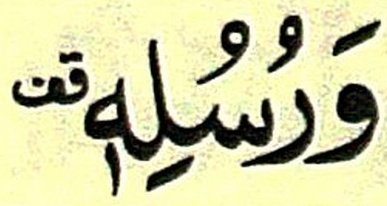 وَرُسُلِهٖ قف